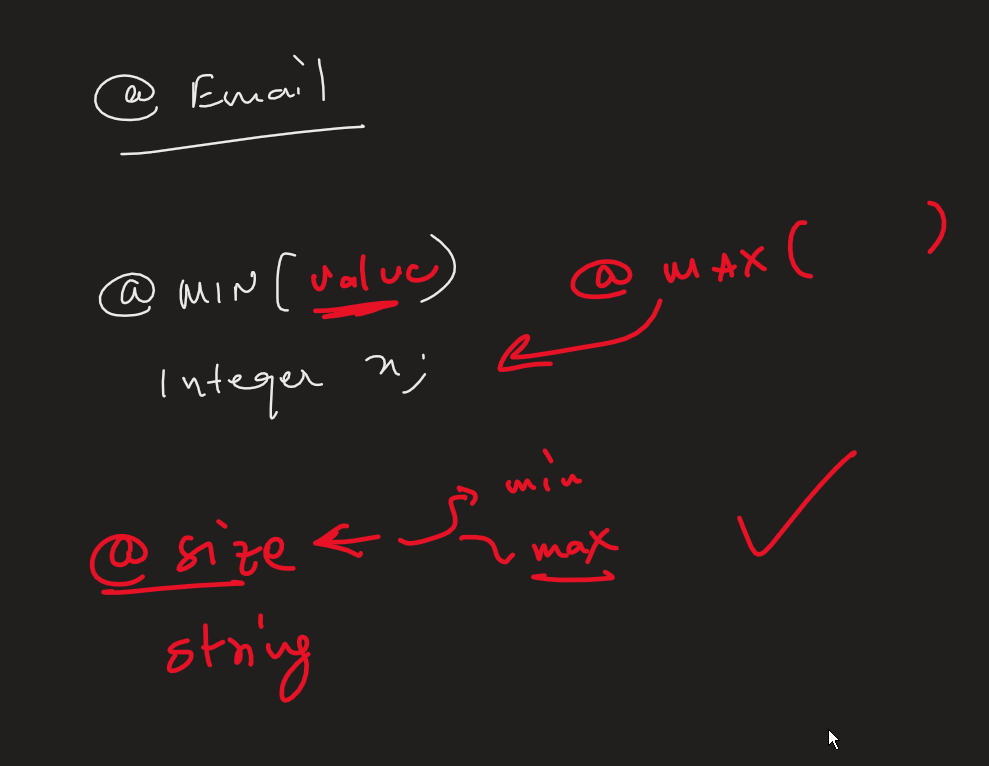 @ Email
@ MIN (value) @ MAX ( )
Integer x;
@ size min
max
string